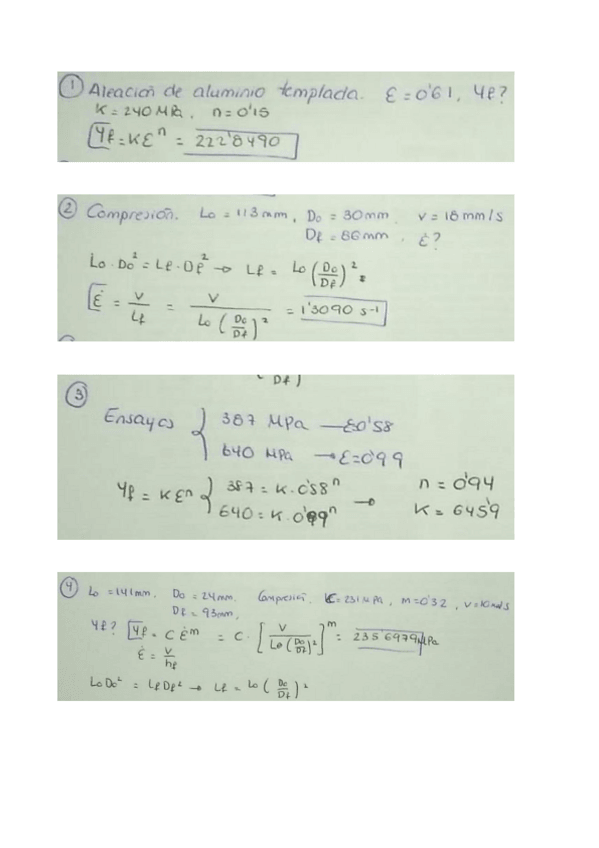 ① Aleación de aluminio templada. ε = 0'61, Yf?
K = 240 MPa, n = 0'15
Yf = Kεⁿ = 222'8490
② Compresión. Lo = 113 mm, Do = 30 mm. v = 18 mm/s
Df = 86 mm, ε̇?
Lo · Do² = Lf · Df² → Lf = Lo (Do/Df)²
ε̇ = v/Lf = v/(Lo (Do/Df)²) = 1'3090 s⁻¹
Df)
③
Ensayos { 387 MPa → ε=0'58
640 MPa → ε=0'99
Yf = Kεⁿ { 387 = K · 0'58ⁿ → n = 0'94
640 = K · 0'99ⁿ K = 645'9
④ Lo = 141 mm. Do = 24 mm. Compresión. C = 231 MPa, m = 0'32,
Df = 93 mm,
Yf? Yf = C ε̇ᵐ = C · [v/(Lo (Do/Df)²)]ᵐ = 235'6979 MPa
ε̇ = v/hf
Lo Do² = Lf Df² → Lf = Lo (Do/Df)²